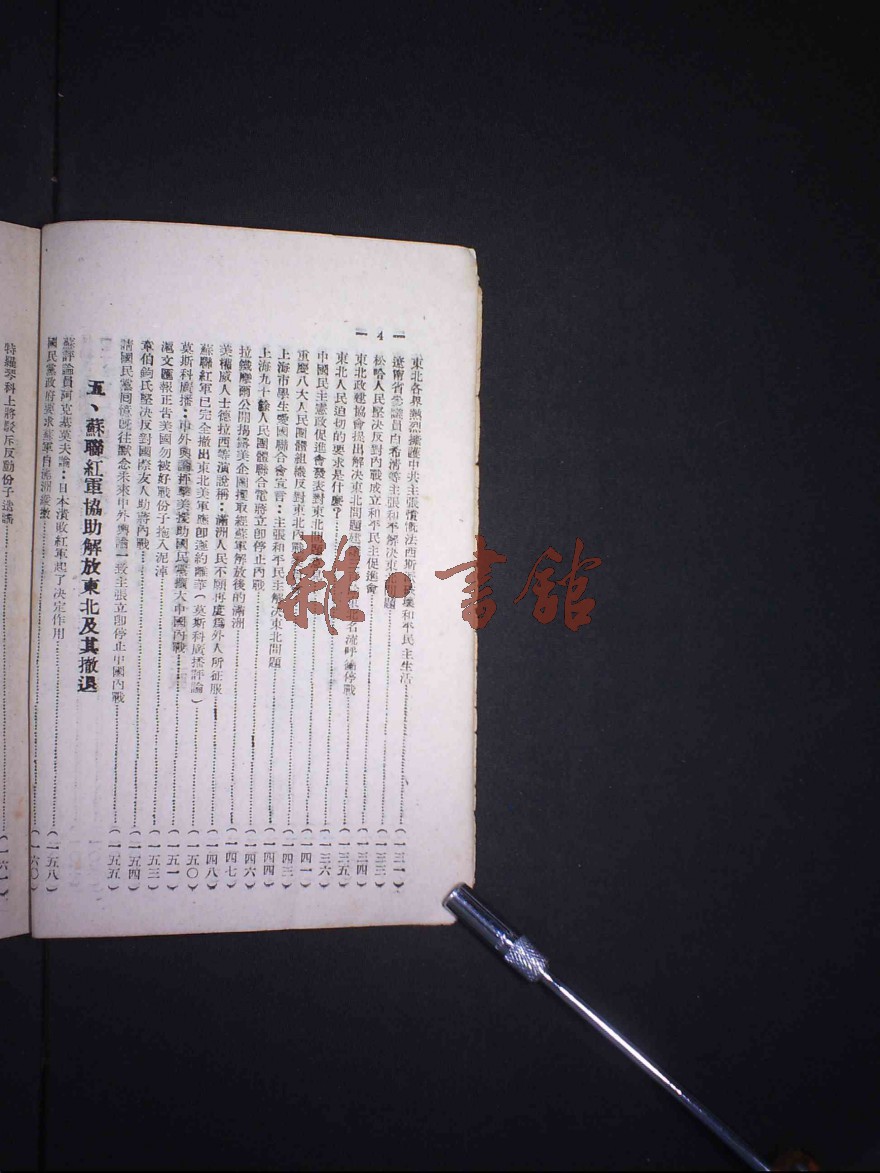 — 4 —
東北各界熱烈擁護中共主張憤慨法西斯 壞和平民主生活……(一三一)
遼南省參議員白希清等主張和平解决東 問題……(一三三)
松哈人民堅决反對內戰成立和平民主促進會……(一三四)
東北政建協會提出解决東北問題 名流呼籲停戰……(一三五)
東北人民迫切的要求是什麽?……(一三六)
中國民主憲政促進會發表對東北問題
重慶八大人民團體組織反對東北內戰……(一四一)
上海市學生愛國聯合會宣言:主張和平民主解决東北問題……(一四三)
上海九十餘人民團體聯合電蔣立即停止內戰……(一四四)
拉鐵摩爾公開揭露美企圖攫取經蘇軍解放後的滿洲……(一四六)
美權威人士德拉西等演說稱:滿洲人民不願再度爲外人所征服……(一四七)
蘇聯紅軍已完全撤出東北美軍應即踐約離華(莫斯科廣播評論)……(一四八)
莫斯科廣播:中外輿論抨擊美援助國民黨擴大中國內戰……(一五〇)
滬文匯報正告美國勿被好戰份子拖入泥淖……(一五一)
章伯鈞氏堅决反對國際友人助蔣內戰……(一五三)
請國民黨回憶既往默念未來中外輿論一致主張立即停止中國內戰……(一五五)
五、蘇聯紅軍協助解放東北及其撤退
蘇評論員阿 夫論:日本潰敗紅軍起了决定作用……(一五八)
國民黨政府要求蘇軍自滿洲緩撤……(一六〇)
特羅琴科上將駁斥反動份子造謠……(一六一)
雜·書館